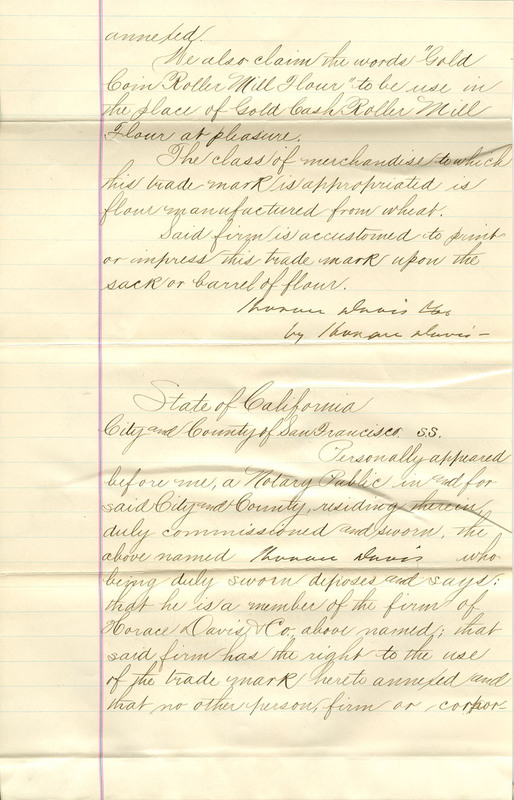 annexed.
We also claim the words "Gold
Coin Roller Mill Flour" to be use in
the place of Gold Cash Roller Mill
Flour at pleasure.
The class of merchandise to which
this trade mark is appropriated is
flour manufactured from wheat.
Said firm is accustomed to print
or impress this trade mark upon the
sack or barrel of flour.
Horace Davis & Co
by Horace Davis
State of California
City and County of San Francisco. S.S.
Personally appeared
before me, a Notary Public in and for
said City and County, residing therein,
duly commissioned and sworn, the
above named Horace Davis who
being duly sworn deposes and says:
that he is a member of the firm of
Horace Davis & Co, above named; that
said firm has the right to the use
of the trade mark hereto annexed and
that no other person, firm or corpor-